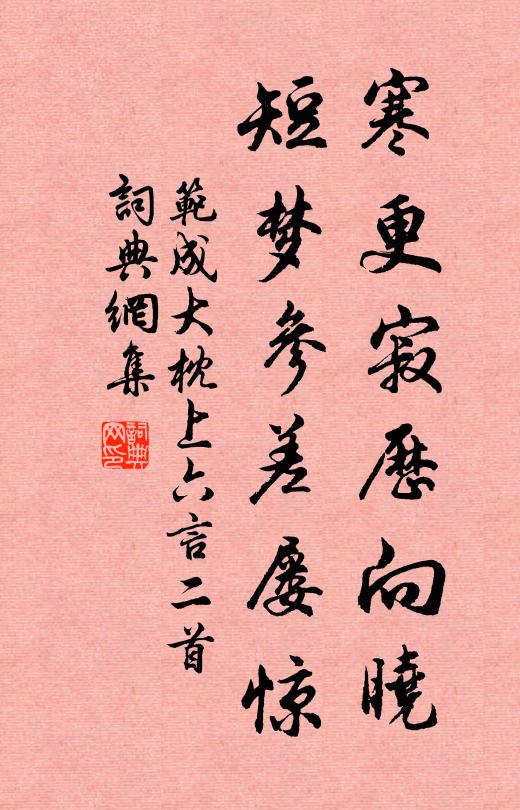 寒更寂歷向曉
短梦参差屡惊
範成大枕上六言二首
詞典網集
詞典网印